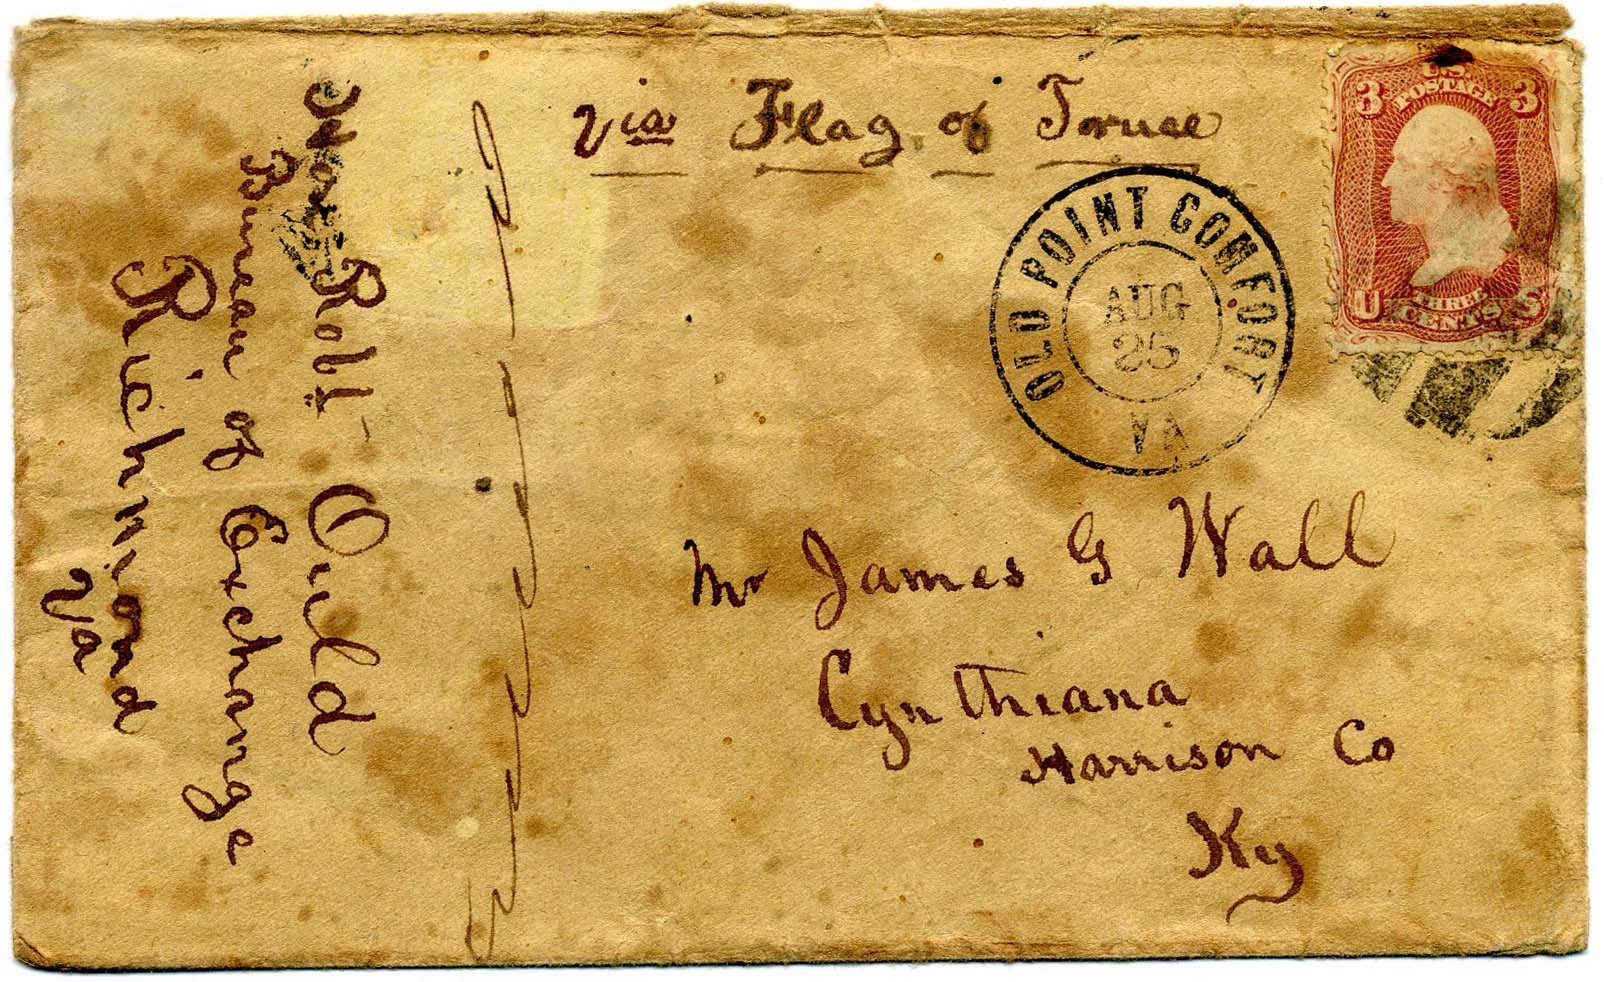 via Flag of Truce
U.S.
3 POSTAGE 3
THREE
U CENTS S
OLD POINT COMFORT
AUG
25
VA
Mr James G Wall
Cynthiana
Harrison Co
Ky
Hon Robt Ould
Bureau of Exchange
Richmond
Va